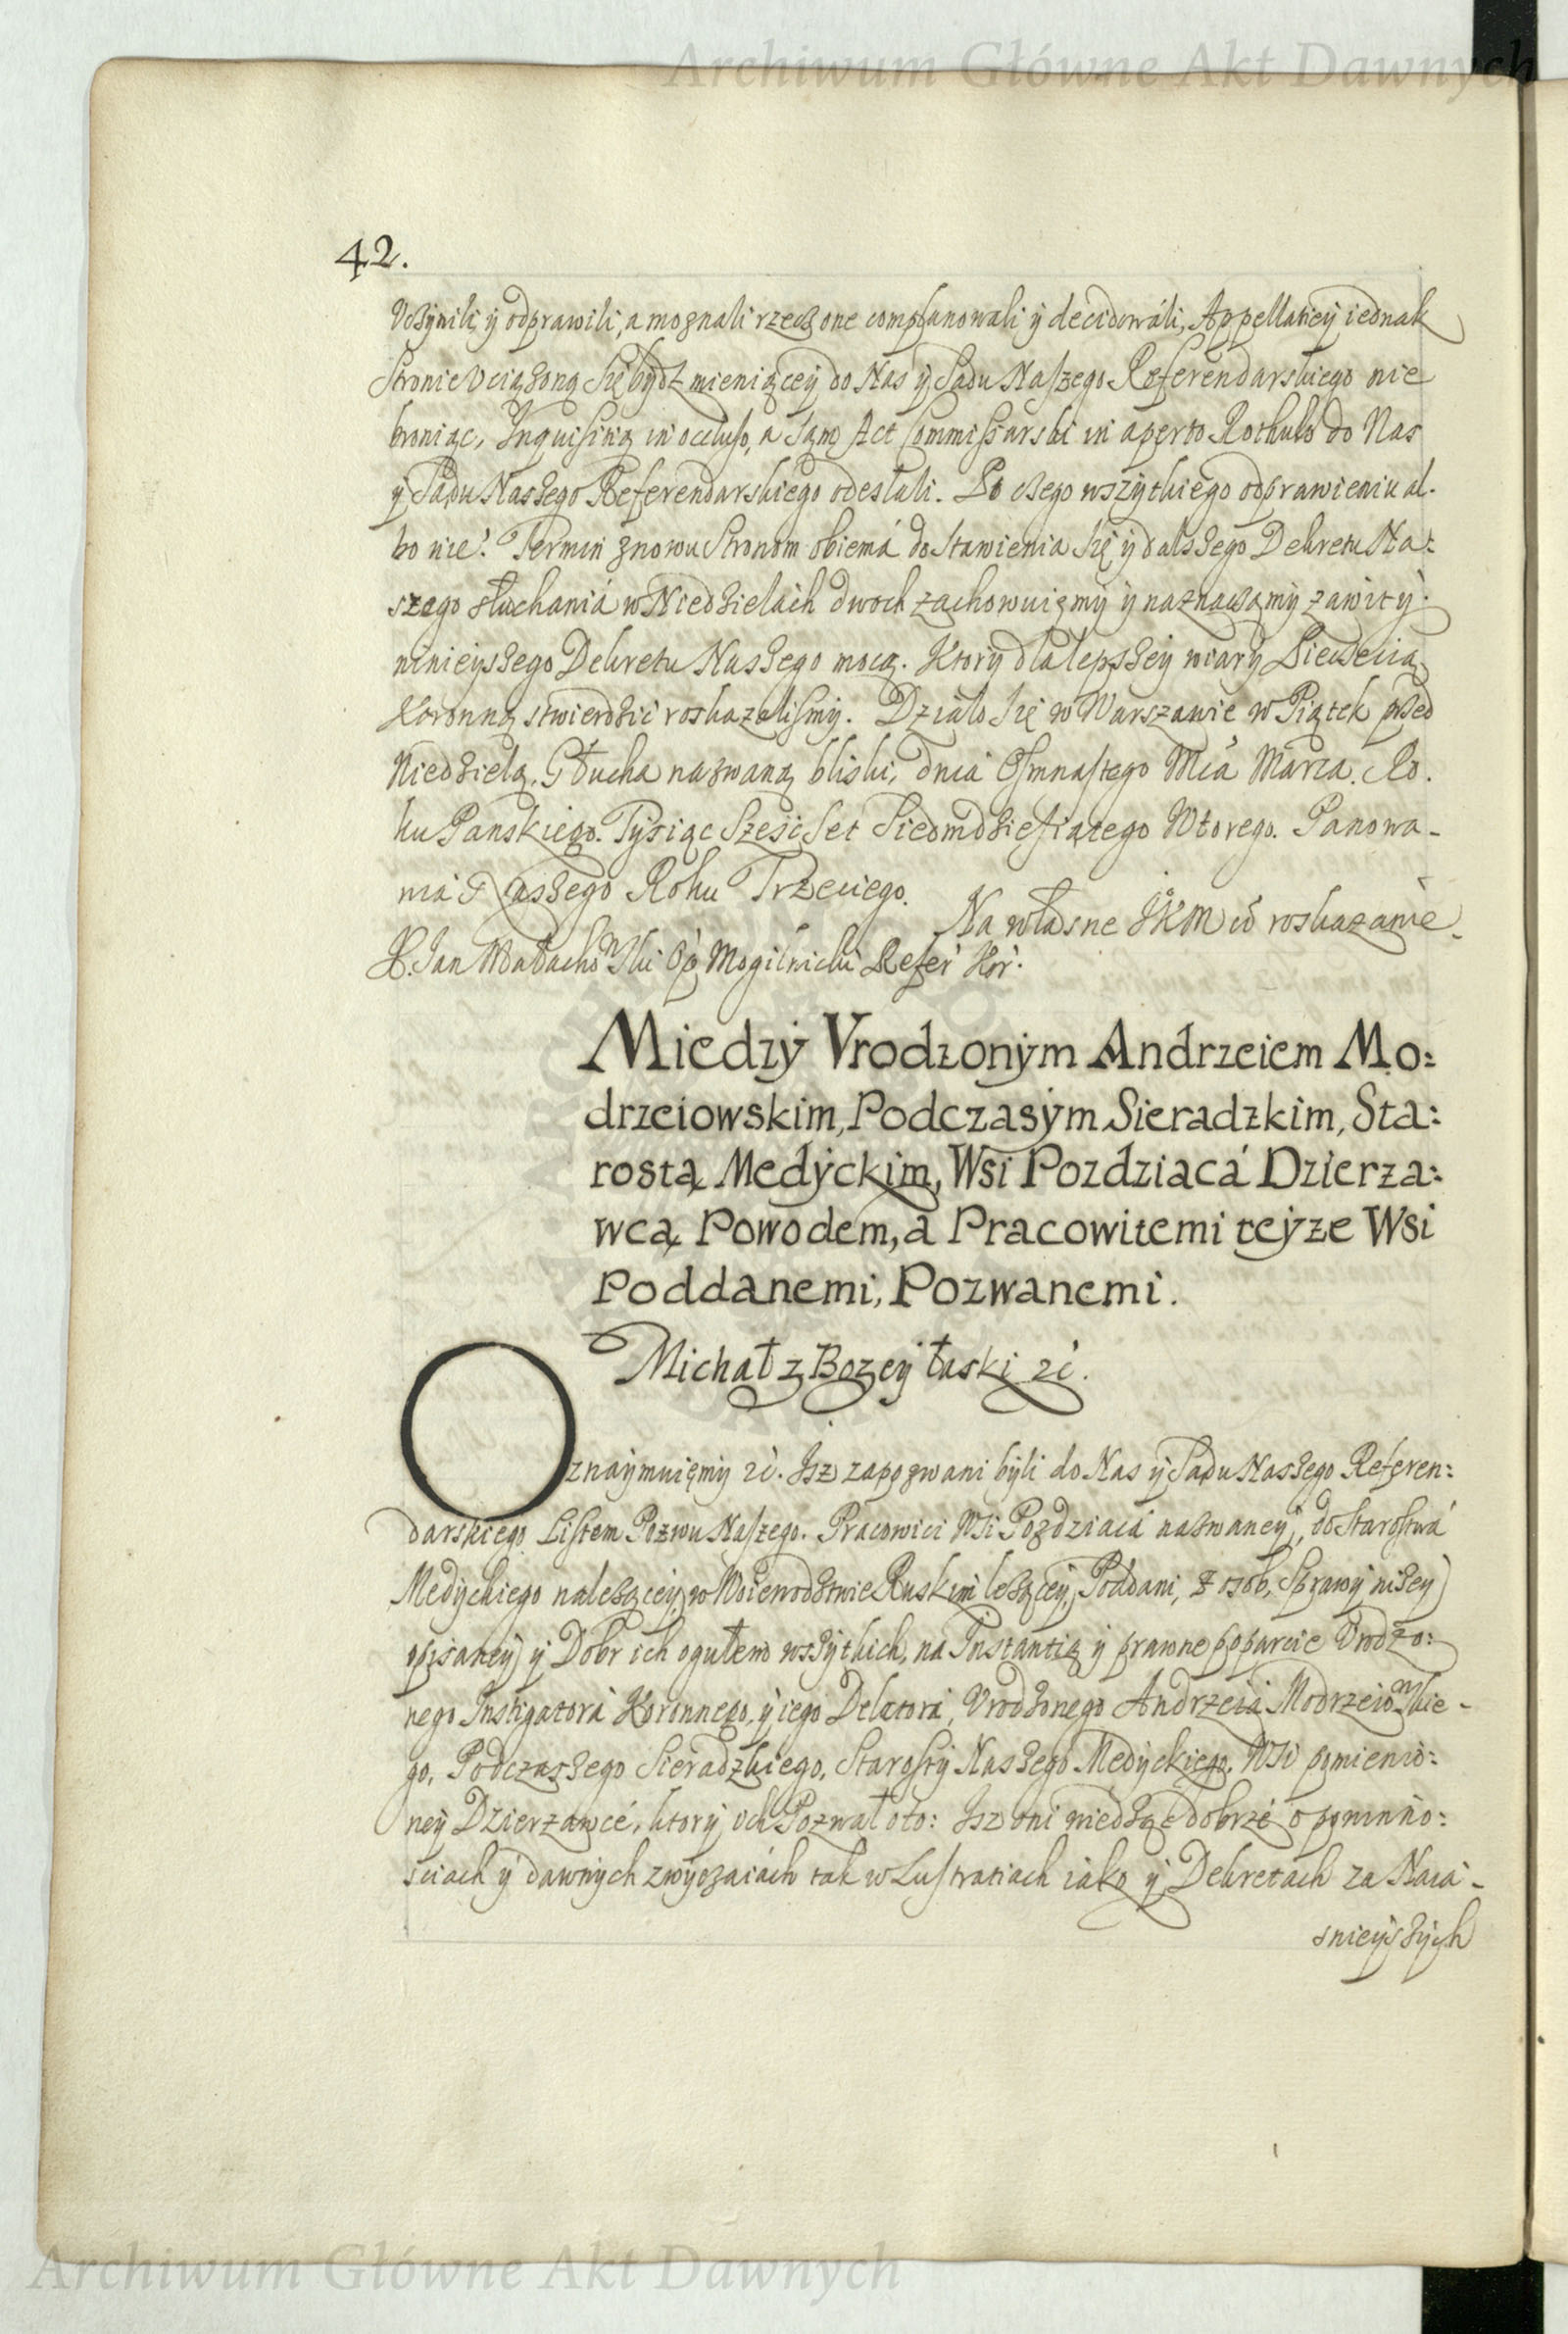 Archiwum Główne Akt Dawnych
42.
Vczynili, ÿ odprawili, a można li rzecz one complanowali ÿ decidowáli, Appellatieÿ iednak
Stronie Vciążoną się bydź mieniąceÿ do Nas ÿ Sądu Naszego Referendarskiego nie
broniąc, Inquisitią in occluso, a sąm Act Commissarski in aperto Rothulo do Nas
ÿ Sądu Naszego Referendarskiego odesłali. Po czego wszÿtkiego odprawieniu al-
bo nie. Termin znowu Stronom obiemá do Stawienia się ÿ dalszego Dekretu Na-
szego słuchaniá w Niedzielach dwoch zachowuięmÿ ÿ naznaczamÿ zawitÿ
ninieÿszego Dekretu Naszego mocą. Ktorÿ dla lepszeÿ wiarÿ Pieczęcią
Koronną stwierdzić roskazalismÿ. Działo się w Warszawie w Piątek przed
Niedzielą, Głucha nazwaną bliski, dnia Osmnastego Mca Marca. Ro-
ku Panskiego. Tÿsiąc Sześć Set Siedmdziesiątego Wtorego. Panowa-
nia Naszego Roku Trzeciego.
Na własne JKMci roskazanie
X. Jan Małachowski Op Mogilnicki Refer Kor.
Miedzÿ Vrodzonÿm Andrzeiem Mo:
drzeiowskim, Podczasÿm Sieradzkim, Sta:
rostą Medÿckim, Wsi Pozdziacá Dzierza:
wcą Powodem, a Pracowitemi teÿze Wsi
Poddanemi, Pozwanemi.
Michał z Bozeÿ łaski zc.
Oznaÿmuięmÿ zc. Isz zapozwani bÿli do Nas ÿ Sądu Naszego Referen:
darskiego Listem Pozwu Naszego. Pracowici Wsi Pozdziacá nazwaneÿ, do Starostwá
Medÿckiego należąceÿ, w Woiewodztwie Ruskim leżąceÿ, Poddani, z osob, Sprawÿ niżeÿ
opisaneÿ ÿ Dobr ich ogułem wszÿtkich, na Instantią ÿ prawne poparcie Vrodzo:
nego Instigatorá Koronnego, ÿ iego Delatorá, Vrodzonego Andrzeiá Modrzeiowskie-
go, Podczaszego Sieradzkiego, Starostÿ Naszego Medÿckiego, Wsi pomienio:
neÿ Dzierzawcé, ktorÿ ich Pozwał oto: Isz oni wiedząc dobrze o powinno:
sciach ÿ dawnÿch zwÿczaiách tak w Lustratiach iako ÿ Dekretach za Naia-
snieÿszÿch
Archiwum Główne Akt Dawnych